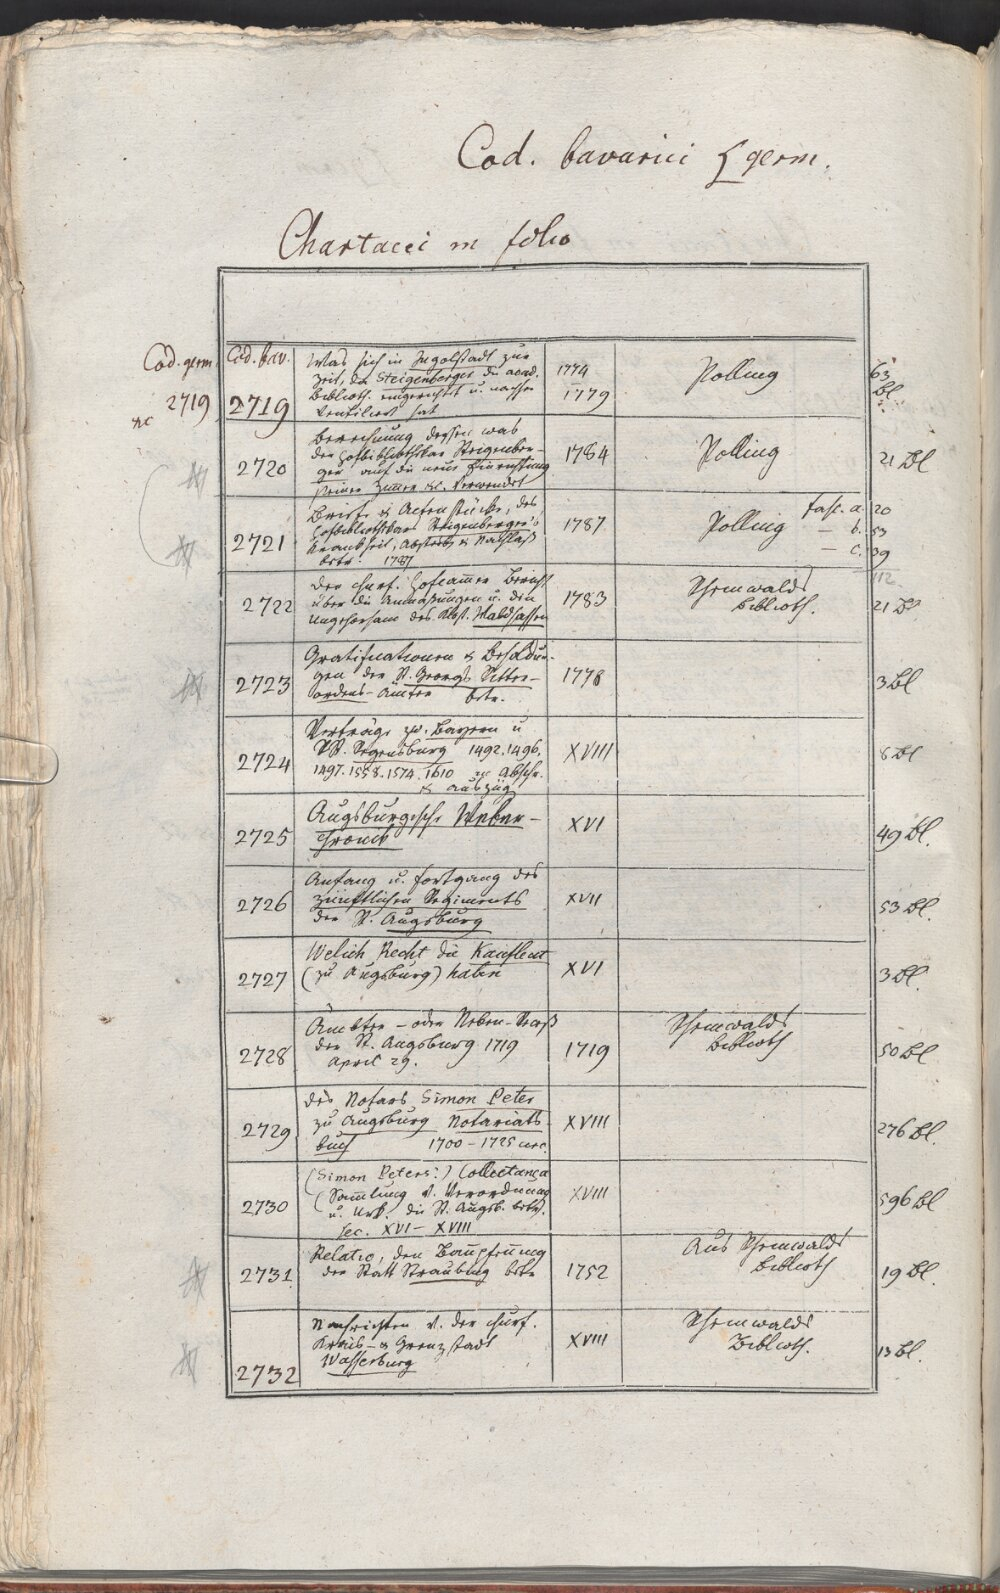 Cod. bavarici & germ.
Chartacei in folio
Cod. germ. Cod. bav.
2719 2719
Was sich in Ingolstadt zur
Zeit, da Steigenberger die acad.
Biblioth. eingerichtet u. nachher
ventiliert hat
1774
–
1779
Polling
63
Bl
2720
Berechnung dessen was
der Hofbibliothekar Steigenber-
ger auf die neue Einrichtung
seiner Zimmer &c. verwendet
1784
Polling
21 Bl
2721
Briefe & Actenstücke, des
Hofbibliothekars Steigenberger's
Krankheit, Absterben & Nachlaß
betr. 1787
1787
Polling
fasc. a. 20
— b. 53
— c. 39
112
2722
Der churf. Hofcammer Bericht
über die Anmaßungen u. den
Ungehorsam des Klost. Waldsassen
1783
Biblioth.
21 Bl
2723
Gratificationen & Besoldun-
gen der St. Georgs Ritter-
ordens-Ämter betr.
1778
3 Bl
2724
Verträge zw. Bayern u
Regensburg 1492. 1496.
1497. 1558. 1574. 1610 in Abschr.
& Auszüg
XVIII
8 Bl
2725
Augsburgische Weber-
chronik
XVI
49 Bl.
2726
Anfang u. Fortgang des
zünftlichen Regiments
der St. Augsburg
XVII
53 Bl.
2727
Welich Recht die Kaufleut
(zu Augsburg) haben
XVI
3 Bl.
2728
Ämbter – oder Neben-
der St. Augsburg 1719
April 29.
1719
Biblioth
50 Bl
2729
des Notars Simon Peter
zu Augsburg Notariats
buch 1700 – 1725 circ.
XVIII
276 Bl.
2730
(Simon Peters?) Collectanea
(Sammlung v. Verordnung
u. Urk. die St. Augsb. betr.
sec. XVI – XVIII
XVIII
596 Bl
2731
Relatio, den
der Statt Straubing betr
1752
Aus
Biblioth
19 Bl.
2732
Nachrichten v. der churf.
Gränzstadt
Wasserburg
XVIII
Biblioth.
13 Bl.